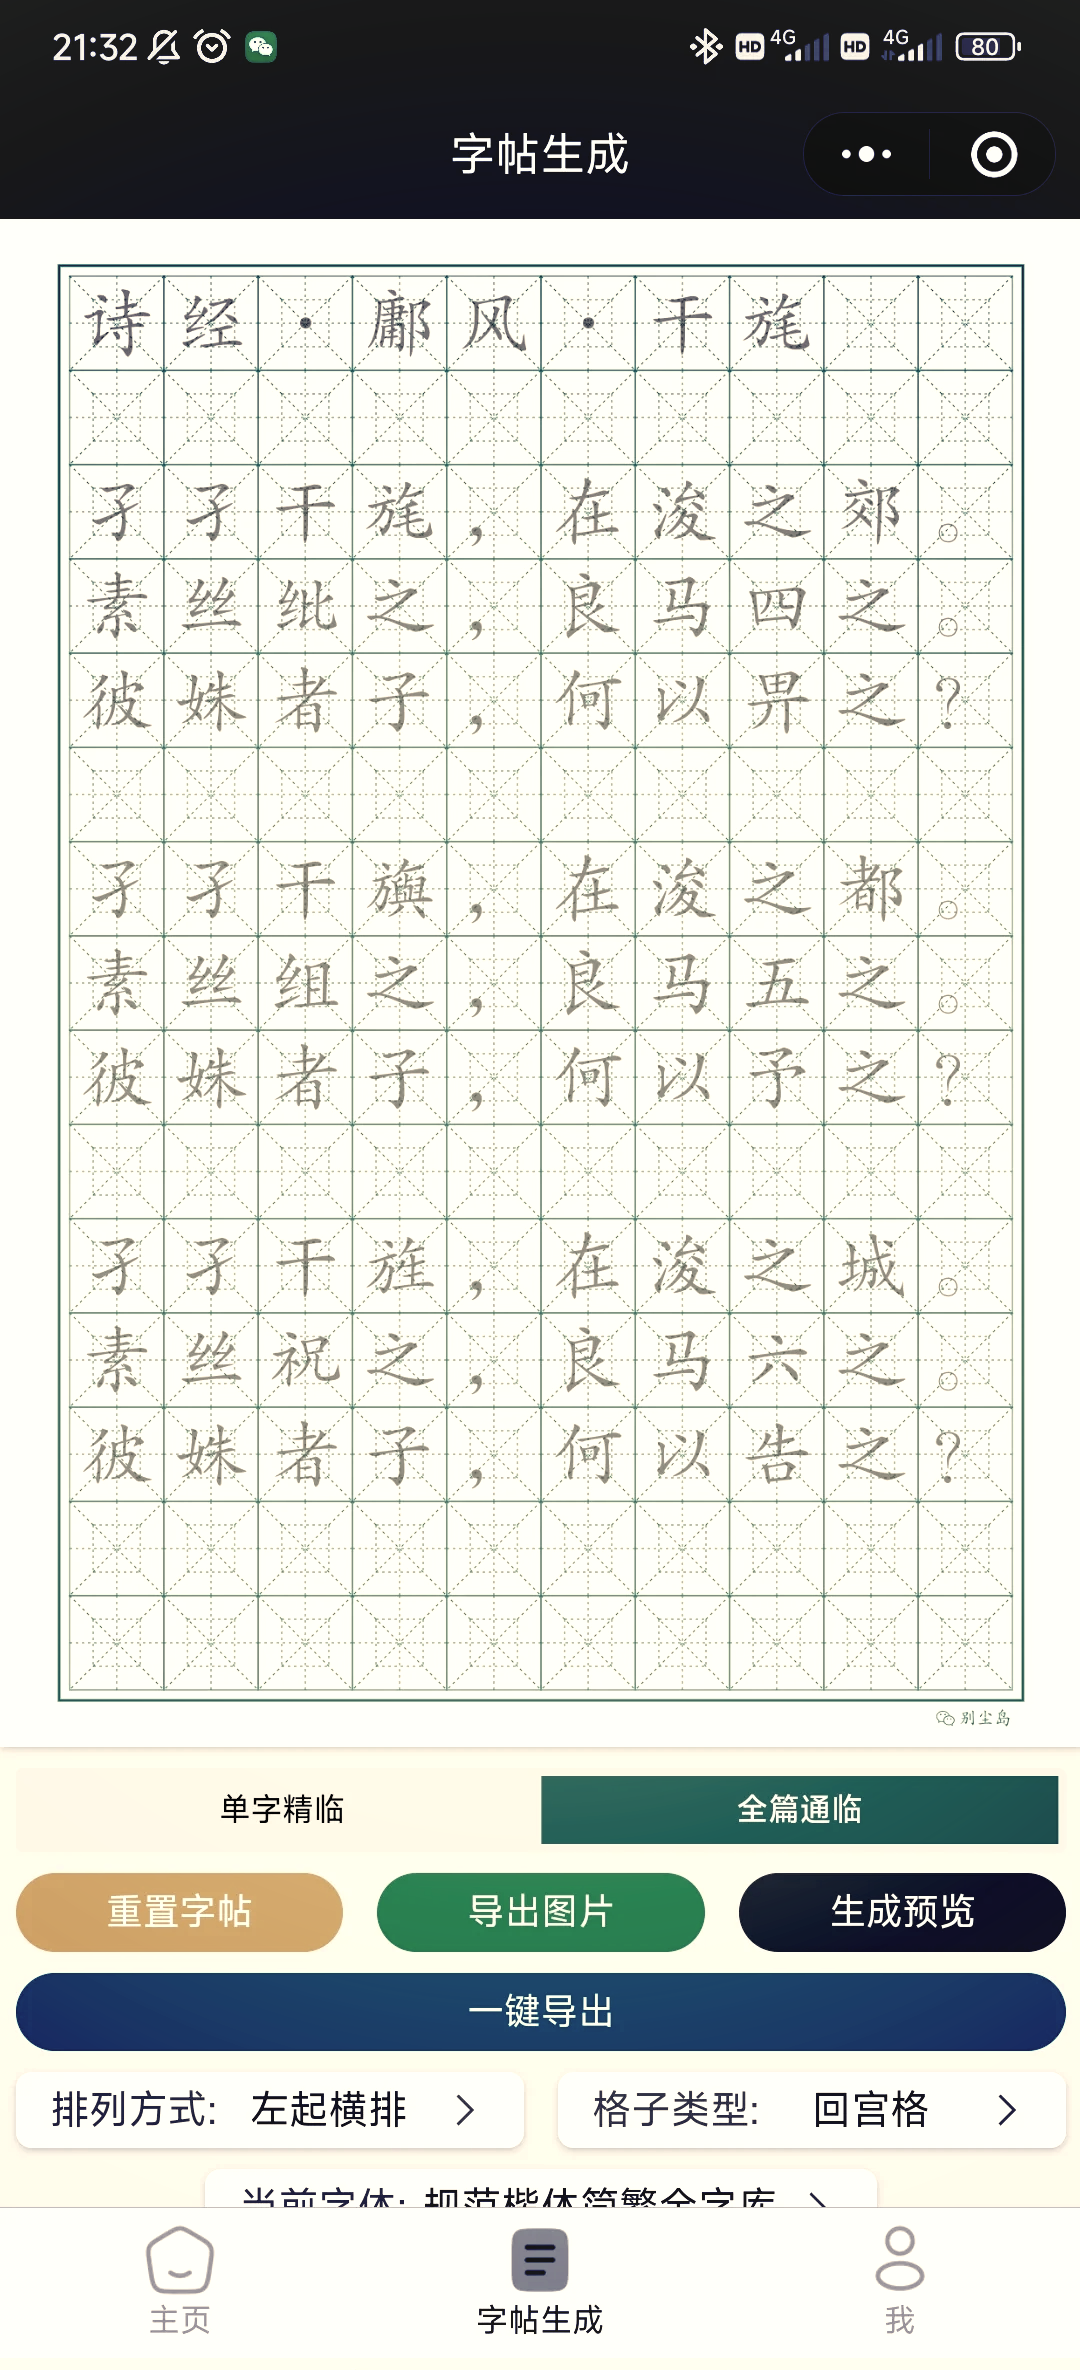 21:32 HD 4G HD 4G 80
字帖生成
诗经·鄘风·干旄
孑孑干旄，在浚之郊。
素丝纰之，良马四之。
彼姝者子，何以畀之？
孑孑干旟，在浚之都。
素丝组之，良马五之。
彼姝者子，何以予之？
孑孑干旌，在浚之城。
素丝祝之，良马六之。
彼姝者子，何以告之？
别尘岛
单字精临 全篇通临
重置字帖 导出图片 生成预览
一键导出
排列方式: 左起横排 格子类型: 回宫格
当前字体: 规范楷体简繁全字库
主页 字帖生成 我